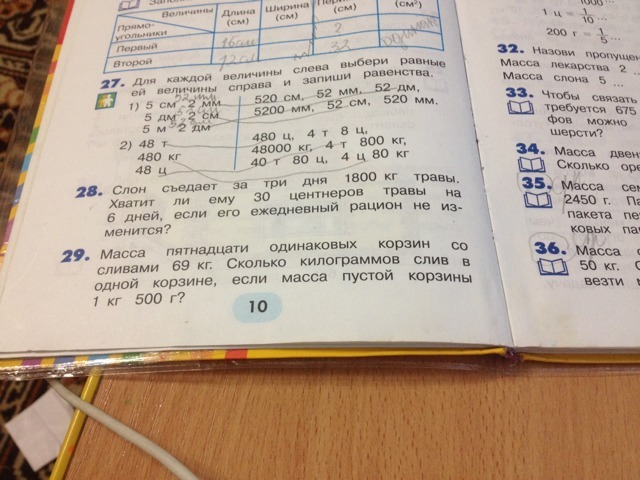 Величины
Длина (см)
Ширина (см)
(см²)
Прямо-
угольники
2
Первый
16 см
32
Второй
12
27. Для каждой величины слева выбери равные
ей величины справа и запиши равенства.
1) 5 см 2 мм
5 дм 2 см
5 м 2 дм
520 см, 52 мм, 52 дм,
5200 мм, 52 см, 520 мм.
2) 48 т
480 кг
48 ц
480 ц, 4 т 8 ц,
48000 кг, 4 т 800 кг,
40 т 80 ц, 4 ц 80 кг
28. Слон съедает за три дня 1800 кг травы.
Хватит ли ему 30 центнеров травы на
6 дней, если его ежедневный рацион не из-
менится?
29. Масса пятнадцати одинаковых корзин со
сливами 69 кг. Сколько килограммов слив в
одной корзине, если масса пустой корзины
1 кг 500 г?
10
1000 ...
1 ц = 1/10 ...
200 г = 1/5 ...
32. Назови
Масса лекарства 2 ...
Масса слона 5 ...
33. Чтобы связать
требуется 675
фов можно
шерсти?
34. Масса
Сколько
35. Масса
2450 г.
пакета
ковых
36. Масса
50 кг.
везти